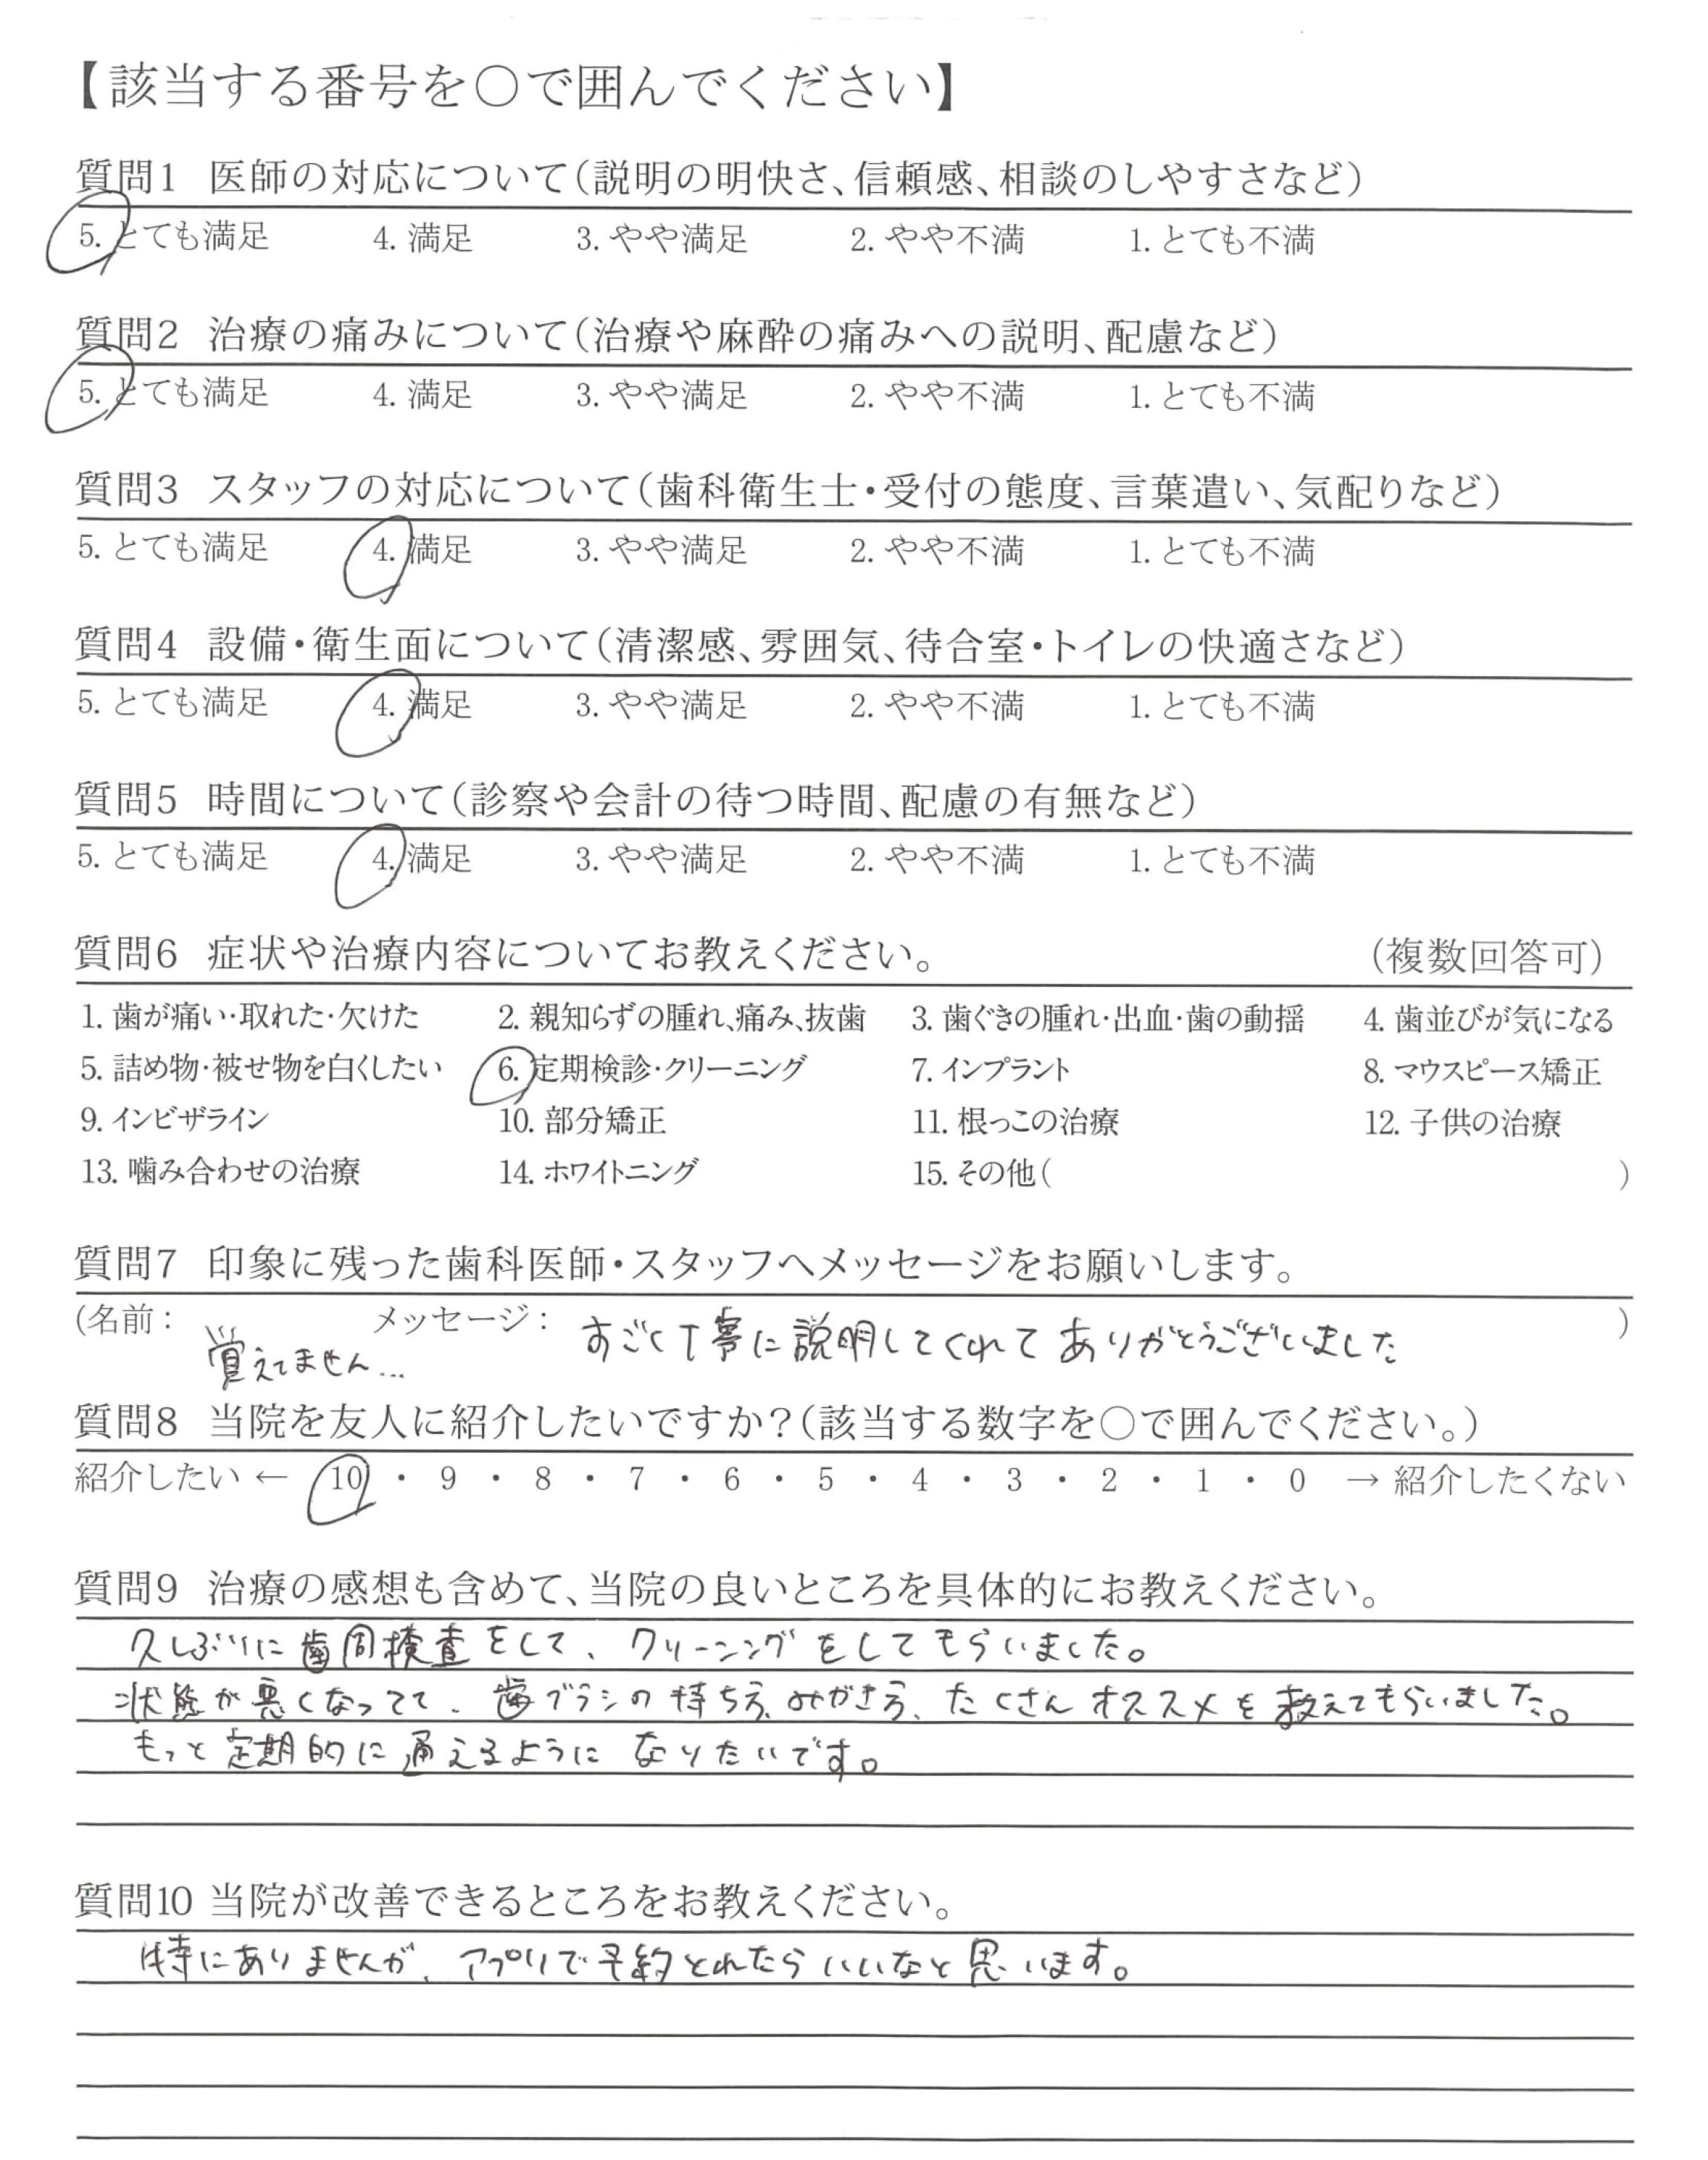 【該当する番号を○で囲んでください】
質問1 医師の対応について（説明の明快さ、信頼感、相談のしやすさなど）
5. とても満足 4. 満足 3. やや満足 2. やや不満 1. とても不満
質問2 治療の痛みについて（治療や麻酔の痛みへの説明、配慮など）
5. とても満足 4. 満足 3. やや満足 2. やや不満 1. とても不満
質問3 スタッフの対応について（歯科衛生士・受付の態度、言葉遣い、気配りなど）
5. とても満足 4. 満足 3. やや満足 2. やや不満 1. とても不満
質問4 設備・衛生面について（清潔感、雰囲気、待合室・トイレの快適さなど）
5. とても満足 4. 満足 3. やや満足 2. やや不満 1. とても不満
質問5 時間について（診察や会計の待つ時間、配慮の有無など）
5. とても満足 4. 満足 3. やや満足 2. やや不満 1. とても不満
質問6 症状や治療内容についてお教えください。 （複数回答可）
1. 歯が痛い・取れた・欠けた 2. 親知らずの腫れ、痛み、抜歯 3. 歯ぐきの腫れ・出血・歯の動揺 4. 歯並びが気になる
5. 詰め物・被せ物を白くしたい 6. 定期検診・クリーニング 7. インプラント 8. マウスピース矯正
9. インビザライン 10. 部分矯正 11. 根っこの治療 12. 子供の治療
13. 噛み合わせの治療 14. ホワイトニング 15. その他（ ）
質問7 印象に残った歯科医師・スタッフへメッセージをお願いします。
（名前： 覚えてません… メッセージ： すごく丁寧に説明してくれてありがとうございました ）
質問8 当院を友人に紹介したいですか？（該当する数字を○で囲んでください。）
紹介したい ← 10 ・ 9 ・ 8 ・ 7 ・ 6 ・ 5 ・ 4 ・ 3 ・ 2 ・ 1 ・ 0 → 紹介したくない
質問9 治療の感想も含めて、当院の良いところを具体的にお教えください。
久しぶりに歯周検査をして、クリーニングをしてもらいました。
状態が悪くなってて、歯ブラシの持ち方、みがき方、たくさんオススメを教えてもらいました。
もっと定期的に通えるようになりたいです。
質問10 当院が改善できるところをお教えください。
特にありませんが、アプリで予約とれたらいいなと思います。